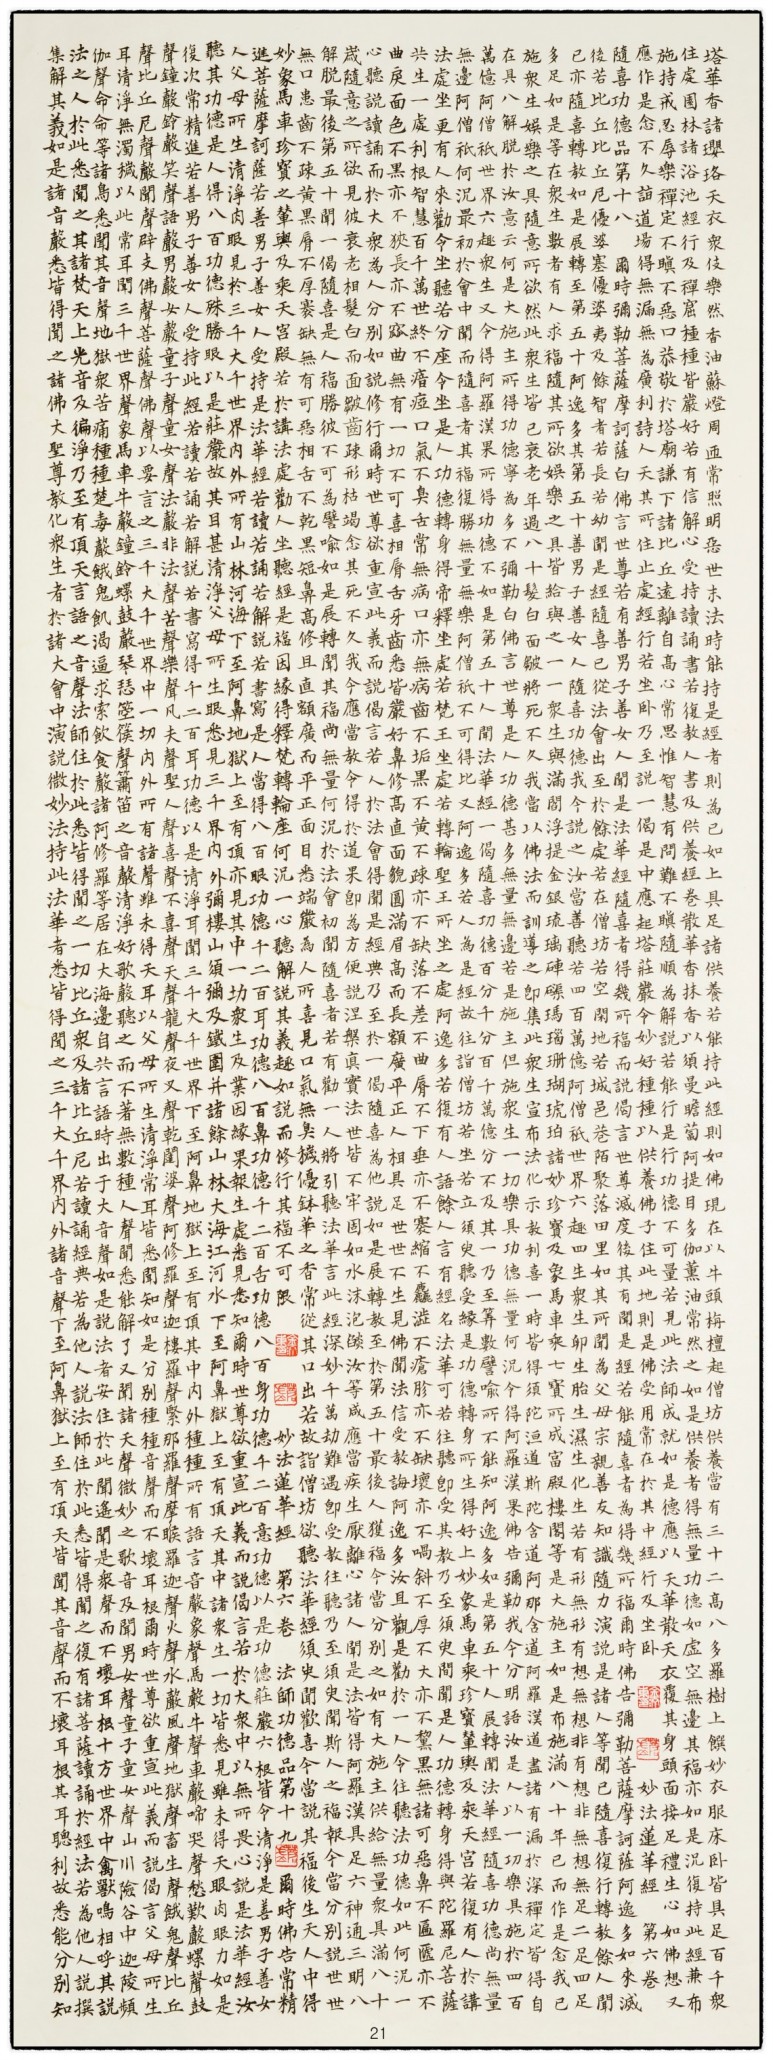 塔華香諸瓔珞天衣衆伎樂然香油蘇燈周匝常照明惡世末法時能持是經者則為已如上具足諸供養若能持此經則如佛現在以牛頭栴檀起僧坊供養當有三十二高八多羅樹上饌妙衣服床卧皆具足百千衆
住處園林諸浴池經行及禪窟種種皆嚴好若有信解心受持讀誦書若復教人書及供養經卷散華香抹香以須曼瞻蔔阿提目多伽薰油常然之如是供養者得無量功德如虛空無邊其福亦如是況復持此經兼布
施持戒忍辱樂禪定不瞋不惡口恭敬於塔廟謙下諸比丘遠離自高心常思惟智慧有問難不瞋隨順為解說若能行是行功德不可量若見此法師成就如是德應以天華散天衣覆其身頭面接足禮生心如佛想又
應作是念不久詣道場得無漏無為廣利諸人天其所住止處經行若坐卧乃至說一偈是中應起塔莊嚴令妙好種種以供養佛子住此地則是佛受用常在於其中經行及坐卧 妙法蓮華經 第六卷
隨喜功德品第十八 爾時彌勒菩薩摩訶薩白佛言世尊若有善男子善女人聞是法華經隨喜者得幾所福而說偈言世尊滅度後其有聞是經若能隨喜者為得幾所福爾時佛告彌勒菩薩摩訶薩阿逸多如來滅
後若比丘比丘尼優婆塞優婆夷及餘智者若長若幼聞是經隨喜已從法會出至於餘處若在僧坊若空閑地若城邑巷陌聚落田里如其所聞為父母宗親善友知識隨力演說是諸人等聞已隨喜復行轉教餘人聞
已亦隨喜轉教如是展轉至第五十阿逸多其第五十善男子善女人隨喜功德我今說之汝當善聽若四百萬億阿僧祇世界六趣四生衆生卵生胎生濕生化生若有形無形有想無想非有想非無想無足二足四足
多足如是等在衆生數者有人求福隨其所欲娛樂之具皆給與之一一衆生與滿閻浮提金銀琉璃硨磲瑪瑙珊瑚琥珀諸妙珍寶及象馬車乘七寶所成宮殿樓閣等是大施主如是布施滿八十年已而作是念我已
施衆生娛樂之具隨意所欲然此衆生皆已衰老年過八十髮白面皺將死不久我當以佛法而訓導之即集此衆生宣布法化示教利喜一時皆得須陀洹道斯陀含道阿那含道阿羅漢道盡諸有漏於深禪定皆得自
在具八解脫於汝意云何是大施主所得功德寧為多不彌勒白佛言世尊是人功德甚多無量無邊若是施主但施衆生一切樂具功德無量何況令得阿羅漢果佛告彌勒我今分明語汝是人以一切樂具施於四百
萬億阿僧祇世界六趣衆生又令得阿羅漢果所得功德不如是第五十人聞法華經一偈隨喜功德百分千分百千萬億分不及其一乃至算數譬喻所不能知阿逸多如是第五十人展轉聞法華經隨喜功德尚無量
無邊阿僧祇何況最初於會中聞而隨喜者其福復勝無量無邊阿僧祇不可得比又阿逸多若人為是經故往詣僧坊若坐若立須臾聽受緣是功德轉身所生得好上妙象馬車乘珍寶輦輿及乘天宮若復有人於講
法處坐更有人來勸令坐聽若分座令坐是人功德轉身得帝釋坐處若梵王坐處若轉輪聖王所坐之處阿逸多若復有人語餘人言有經名法華可共往聽即受其教乃至須臾間聞是人功德轉身得與陀羅尼菩薩
共生一處利根智慧百千萬世終不瘖瘂口氣不臭舌常無病口亦無病齒不垢黑不黃不踈亦不缺落不差不曲脣不下垂亦不褰縮不麤澁不瘡胗亦不缺壞亦不喎斜不厚不大亦不黧黑無諸可惡鼻不匾㔸亦不
曲戾面色不黑亦不狹長亦不窊曲無有一切不可喜相脣舌牙齒悉皆嚴好鼻修高直面貌圓滿眉高而長額廣平正人相具足世世所生見佛聞法信受教誨阿逸多汝且觀是勸於一人令往聽法功德如此何況一
心聽說讀誦而於大衆為人分別如說修行爾時世尊欲重宣此義而說偈言若人於法會得聞是經典乃至於一偈隨喜為他說如是展轉教至於第五十最後人獲福今當分別之如有大施主供給無量衆具滿八十
歲隨意之所欲見彼衰老相髮白而面皺齒踈形枯竭念其死不久我今應當教令得於道果即為方便說涅槃真實法世皆不牢固如水沫泡焰汝等咸應當疾生厭離心諸人聞是法皆得阿羅漢具足六神通三明八
解脫最後第五十聞一偈隨喜是人福勝彼不可為譬喻如是展轉聞其福尚無量何況於法會初聞隨喜者若有勸一人將引聽法華言此經深妙千萬劫難遇即受教往聽乃至須臾聞斯人之福報今當分別說世世
無口患齒不踈黃黑脣不厚褰缺無有可惡相舌不乾黑短鼻高修且直額廣而平正面目悉端嚴為人所喜見口氣無臭穢優鉢華之香常從其口出若故詣僧坊欲聽法華經須臾聞歡喜今當說其福後生天人中得
妙象馬車珍寶之輦輿及乘天宮殿若於講法處勸人坐聽經是福因緣得釋梵轉輪座何況一心聽解說其義趣如說而修行其福不可限 妙法蓮華經 第六卷 法師功德品第十九 爾時佛告常精
進菩薩摩訶薩若善男子善女人受持是法華經若讀若誦若解說若書寫是人當得八百眼功德千二百耳功德八百鼻功德千二百舌功德八百身功德千二百意功德以是功德莊嚴六根皆令清淨是善男子善女
人父母所生清淨肉眼見於三千大千世界內外所有山林河海下至阿鼻地獄上至有頂亦見其中一切衆生及業因緣果報生處悉見悉知爾時世尊欲重宣此義而說偈言若於大衆中以無所畏心說是法華經汝
聽其功德是人得八百功德殊勝眼以是莊嚴故其目甚清淨父母所生眼悉見三千界內外彌樓山須彌及鐵圍并諸餘山林大海江河水下至阿鼻獄上至有頂天其中諸衆生一切皆悉見雖未得天眼肉眼力如是
復次常精進若善男子善女人受持此經若讀若誦若解說若書寫得千二百耳功德以是清淨耳聞三千大千世界下至阿鼻地獄上至有頂其中內外種種所有語言音聲象聲馬聲牛聲車聲啼哭聲愁歎聲螺聲鼓
聲鐘聲鈴聲笑聲語聲男聲女聲童子聲童女聲法聲非法聲苦聲樂聲凡夫聲聖人聲喜聲不喜聲天聲龍聲夜叉聲乾闥婆聲阿修羅聲迦樓羅聲緊那羅聲摩睺羅迦聲火聲水聲風聲地獄聲畜生聲餓鬼聲比丘
聲比丘尼聲聲聞聲辟支佛聲菩薩聲佛聲以要言之三千大千世界中一切內外所有諸聲雖未得天耳以父母所生清淨常耳皆悉聞知如是分別種種音聲而不壞耳根爾時世尊欲重宣此義而說偈言父母所生
耳清淨無濁穢以此常耳聞三千世界聲象馬車牛聲鐘鈴螺鼓聲琴瑟箜篌聲簫笛之音聲清淨好歌聲聽之而不著無數種人聲聞悉能解了又聞諸天聲微妙之歌音及聞男女聲童子童女聲山川險谷中迦陵頻
伽聲命命等諸鳥悉聞其音聲地獄衆苦痛種種楚毒聲餓鬼飢渴逼求索飲食聲諸阿修羅等居在大海邊自共言語時出于大音聲如是說法者安住於此間遙聞是衆聲而不壞耳根十方世界中禽獸鳴相呼其說
法之人於此悉聞之其諸梵天上光音及徧淨乃至有頂天言語之音聲法師住於此悉皆得聞之一切比丘衆及諸比丘尼若讀誦經典若為他人說法師住於此悉皆得聞之復有諸菩薩讀誦於經法若為他人說撰
集解其義如是諸音聲悉皆得聞之諸佛大聖尊教化衆生者於諸大會中演說微妙法持此法華者悉皆得聞之三千大千界內外諸音聲下至阿鼻獄上至有頂天皆聞其音聲而不壞耳根其耳聰利故悉能分別知
21